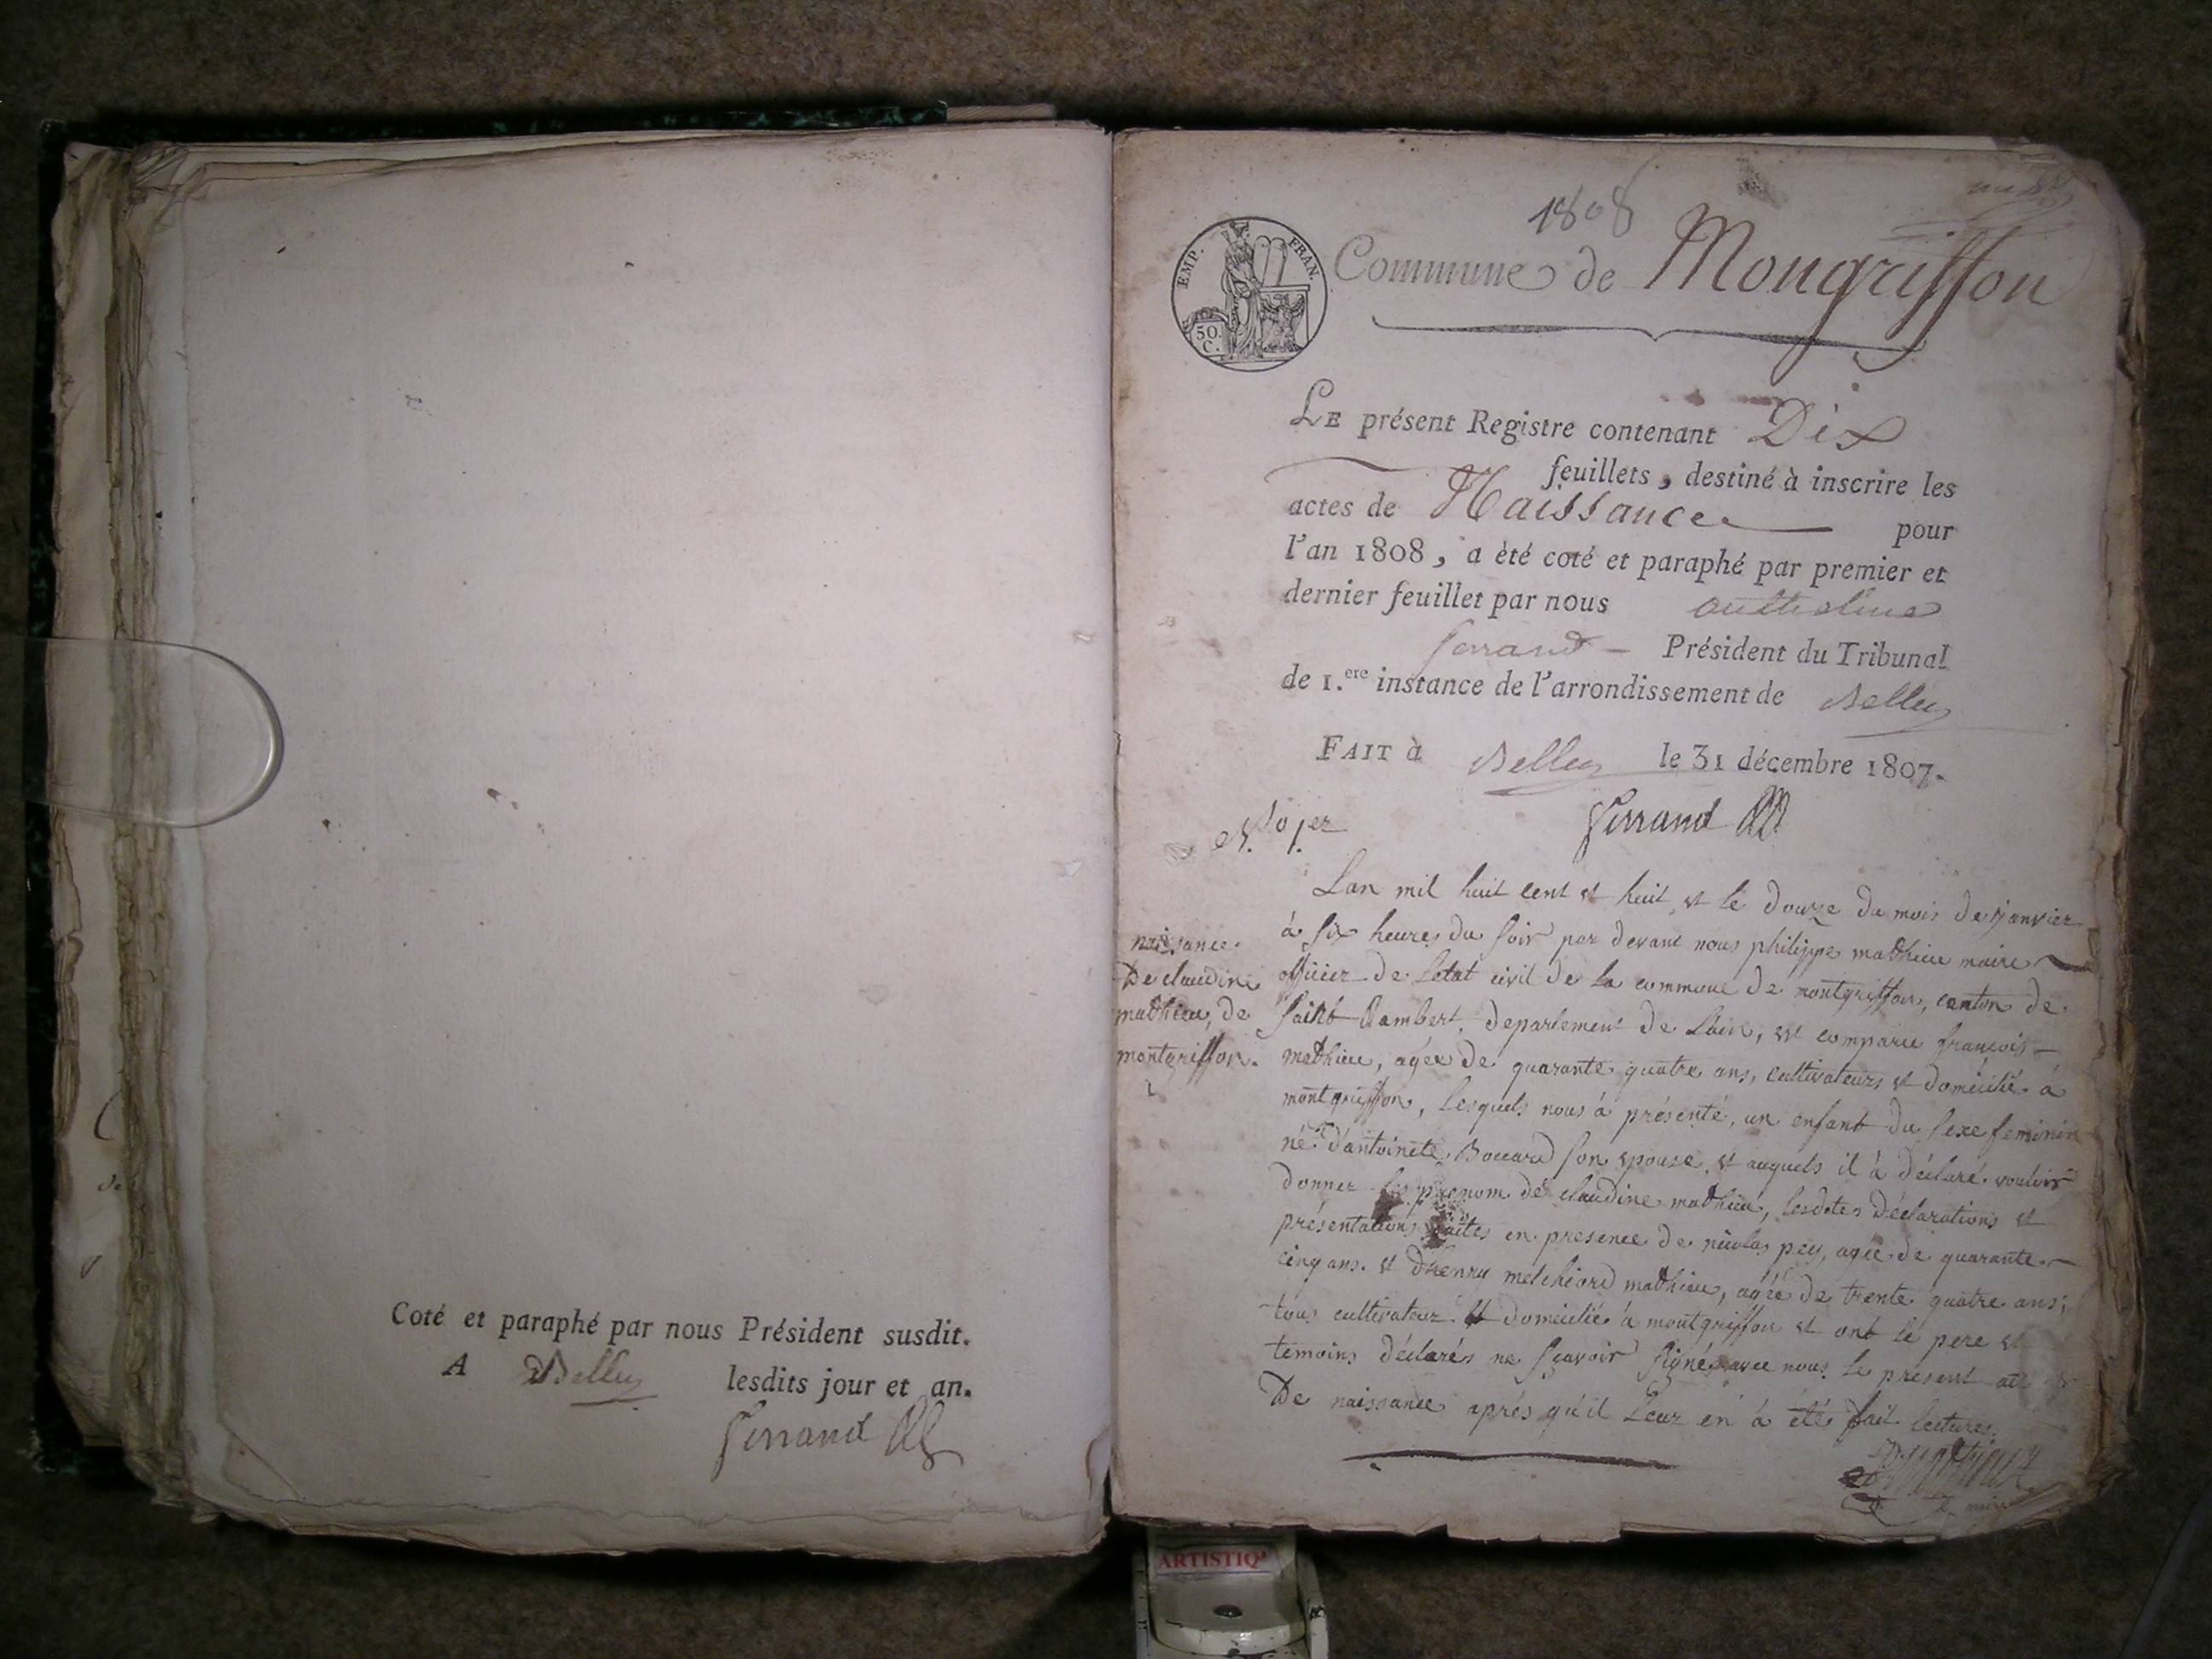 Coté et paraphé par nous Président susdit.
A Belley lesdits jour et an.
Ferrand
1808
EMP. FRAN.
50.
C.
Commune de Mongriffon
LE présent Registre contenant Dix
feuillets, destiné à inscrire les
actes de Naissance pour
l'an 1808, a été coté et paraphé par premier et
dernier feuillet par nous anthelme
ferrand Président du Tribunal
de 1.ere instance de l'arrondissement de Belley
FAIT à Belley le 31 décembre 1807.
Ferrand
N.o 1.er
naissance
De claudine
mathieu, de
montgriffon.
Lan mil huit cent et huit et le douze du mois de janvier
à six heures du soir par devant nous philippe mathieu maire
officier de letat civil de la commune de montgriffon, canton de
saint Rambert, departement de Lain, est comparu françois
mathieu, agée de quarante quatre ans, cultivateurs et domicilié à
montgriffon, lesquels nous à présenté, un enfant du sexe feminin
né d'antoinete Bouard son epouse, et auquels il à déclaré vouloir
donner les prenom de claudine mathieu, lesdites déclarations et
présentations faites en presence de nicolas pey, agée de quarante
cinq ans. et d'henry melchiord mathieu, agée de trente quatre ans,
tous cultivateur et domiciliée à montgriffon et ont le pere et
temoins déclarés ne sçavoir signé avec nous le present
De naissance après qu'il Leur en à été fait lectures.
maire
ARTISTIQ